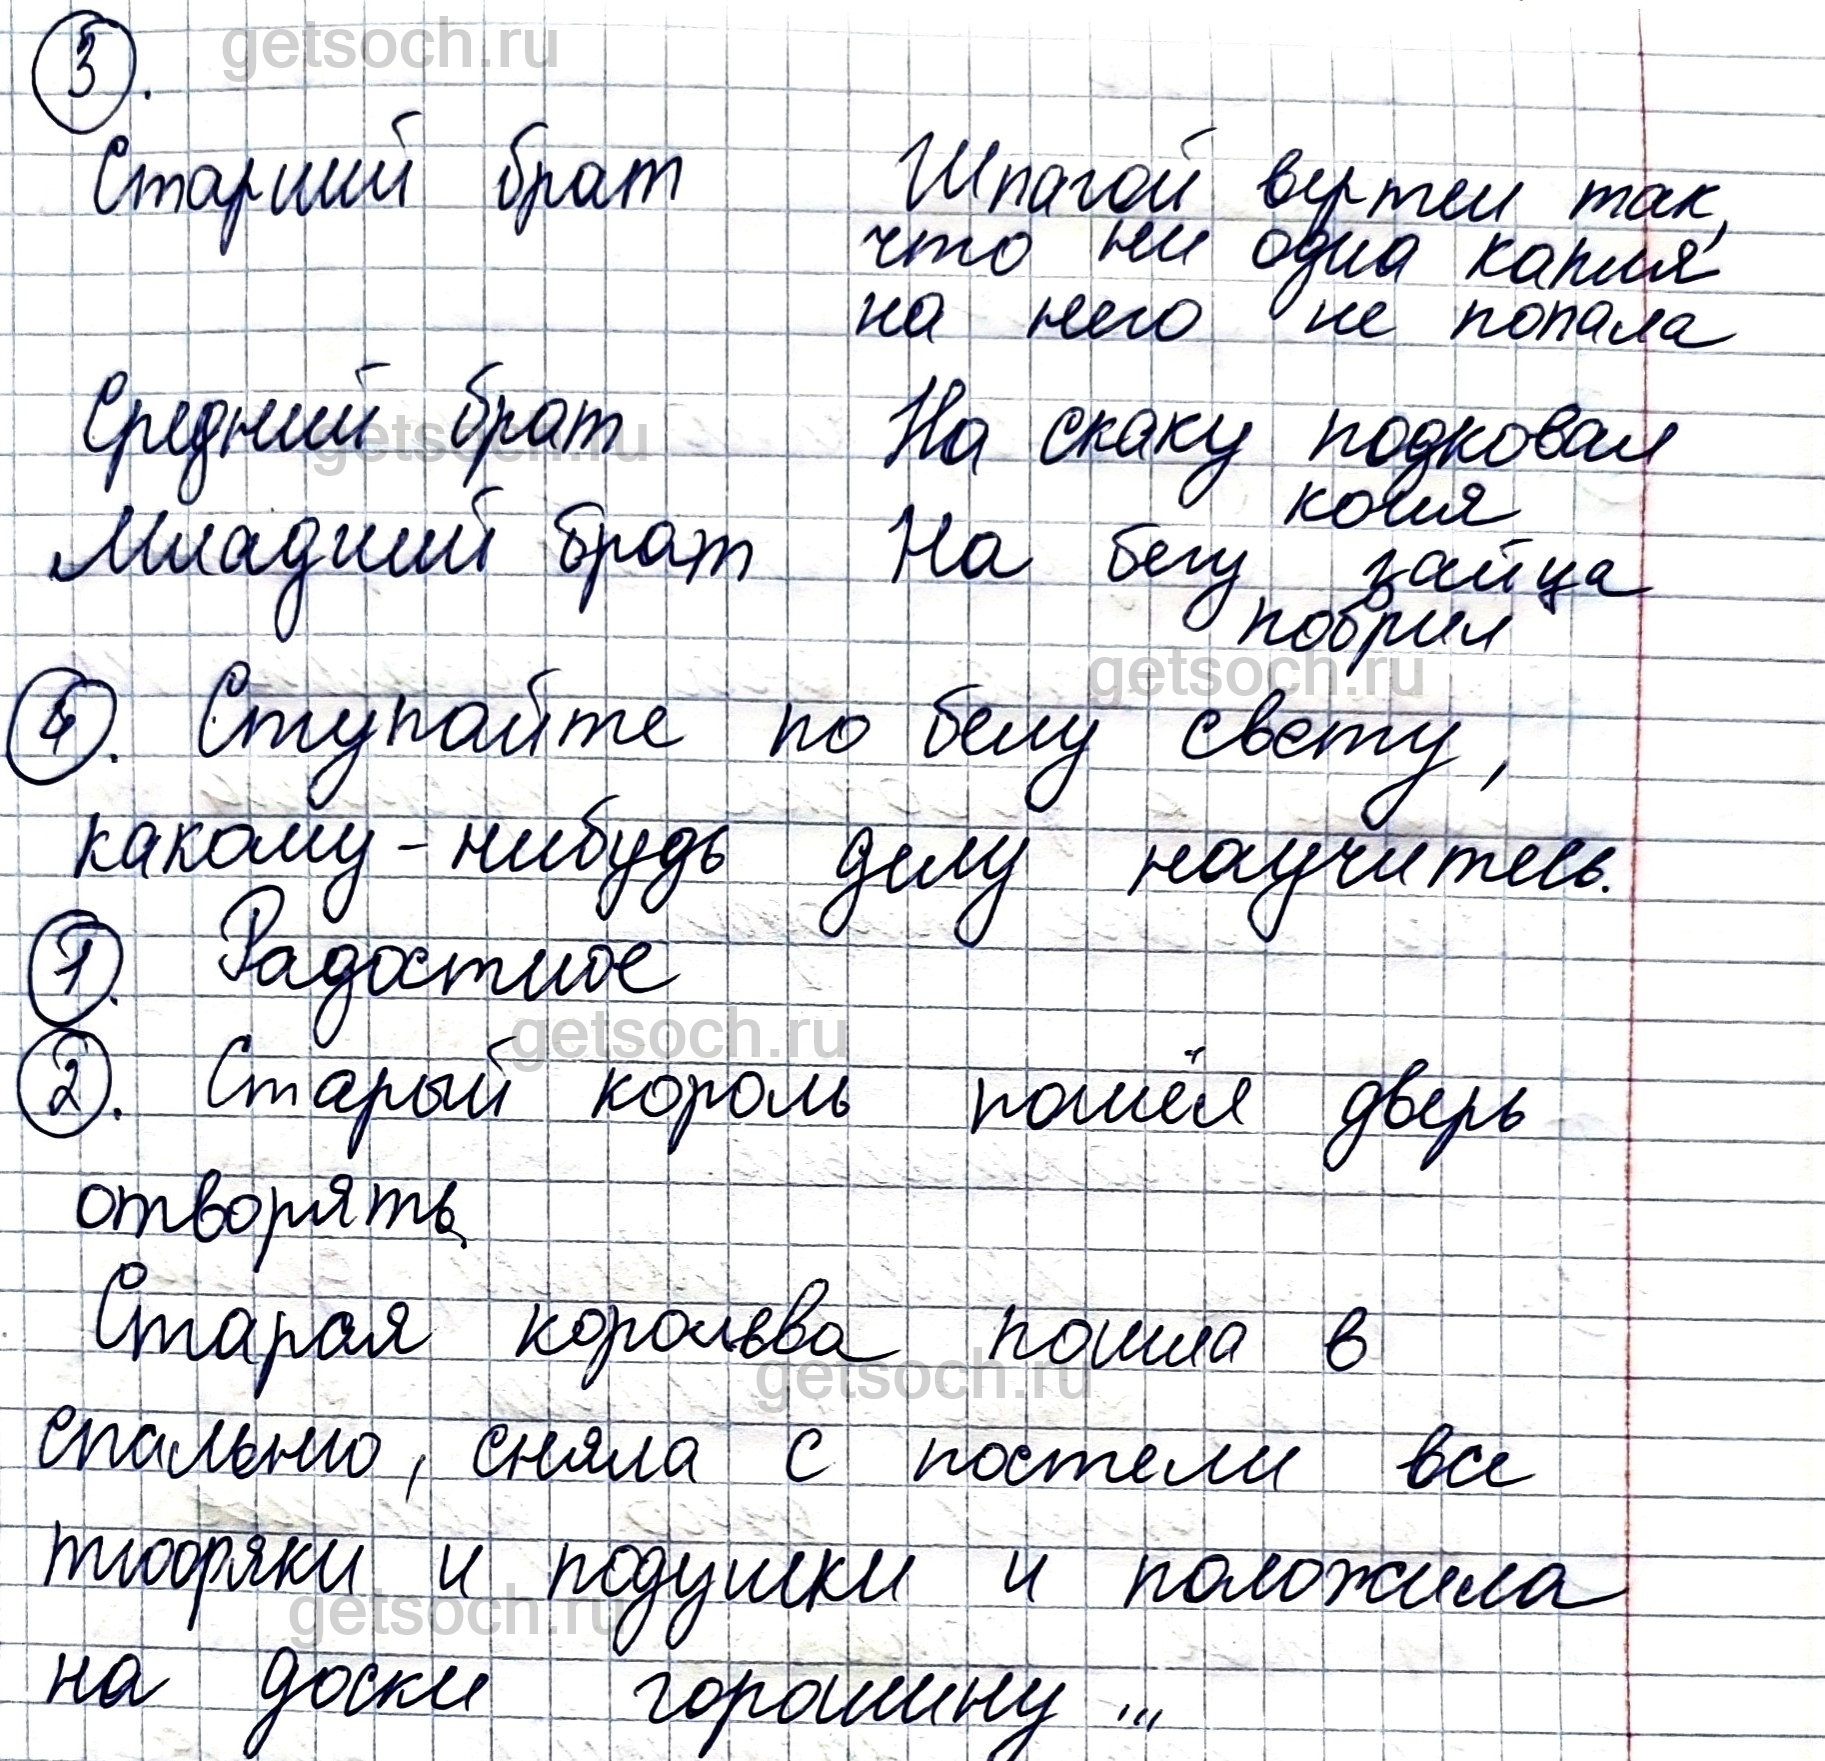 getsoch.ru
3.
Старший брат Шпагой вертел так,
что ни одна капля
на него не попала
Средний брат На скаку подковал
getsoch.ru
коня
Младший брат На бегу зайца
побрил
getsoch.ru
4. Ступайте по белу свету,
какому-нибудь делу научитесь.
1. Радостное
getsoch.ru
2. Старый король пошёл дверь
отворять.
Старая королева пошла в
getsoch.ru
спальню, сняла с постели все
тюфряки и подушки и положила
getsoch.ru
на доски горошину...